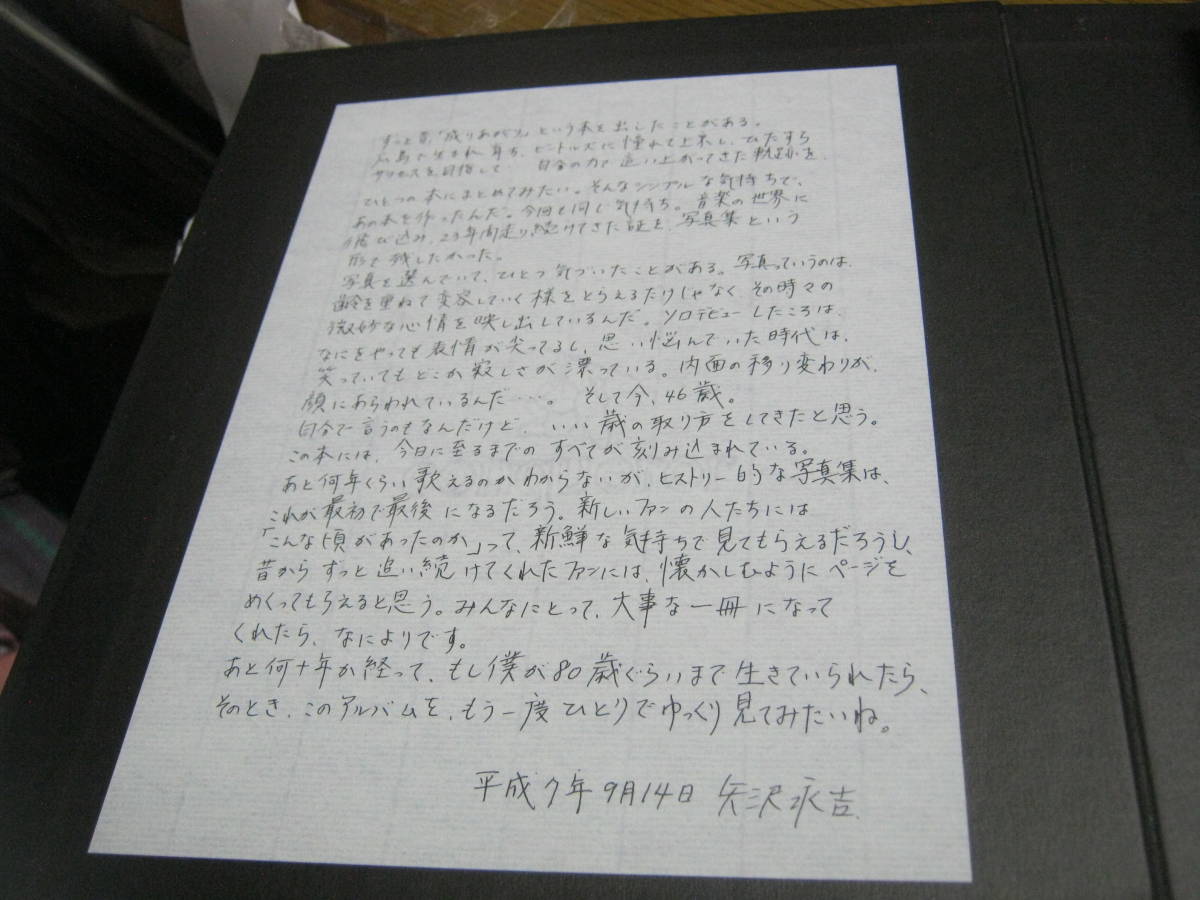 ずっと昔、「成りあがり」という本を出したことがある。
広島で生まれ育ち、ビートルズに憧れて上京し、ひたすら
サクセスを目指して 自分の力で追い上がってきた軌跡を、
ひとつの本にまとめてみたい。そんなシンプルな気持ちで、
あの本を作ったんだ。今回も同じ気持ち。音楽の世界に
飛び込み、23年間走り続けてきた証を、写真集という
形で残したかった。
写真を選んでいて、ひとつ気づいたことがある。写真っていうのは、
齢を重ねて変容していく様をとらえるだけじゃなく その時々の
微妙な心情を映し出しているんだ。ソロデビューしたころは、
なにをやっても表情が尖ってるし、思い悩んでいた時代は、
笑っていてもどこか寂しさが漂っている。内面の移り変わりが、
顔にあらわれているんだ……。 そして今、46歳。
自分で言うのもなんだけど、いい歳の取り方をしてきたと思う。
この本には、今日に至るまでの すべてが刻み込まれている。
あと何年くらい歌えるのかわからないが、ヒストリー的な写真集は、
これが最初で最後になるだろう。新しいファンの人たちには
「こんな頃があったのか」って、新鮮な気持ちで見てもらえるだろうし、
昔からずっと追い続けてくれたファンには、懐かしむようにページを
めくってもらえると思う。みんなにとって、大事な一冊になって
くれたら、なによりです。
あと何十年か経って、もし僕が80歳ぐらいまで生きていられたら、
そのとき、このアルバムを、もう一度ひとりでゆっくり見てみたいね。
平成7年9月14日 矢沢永吉